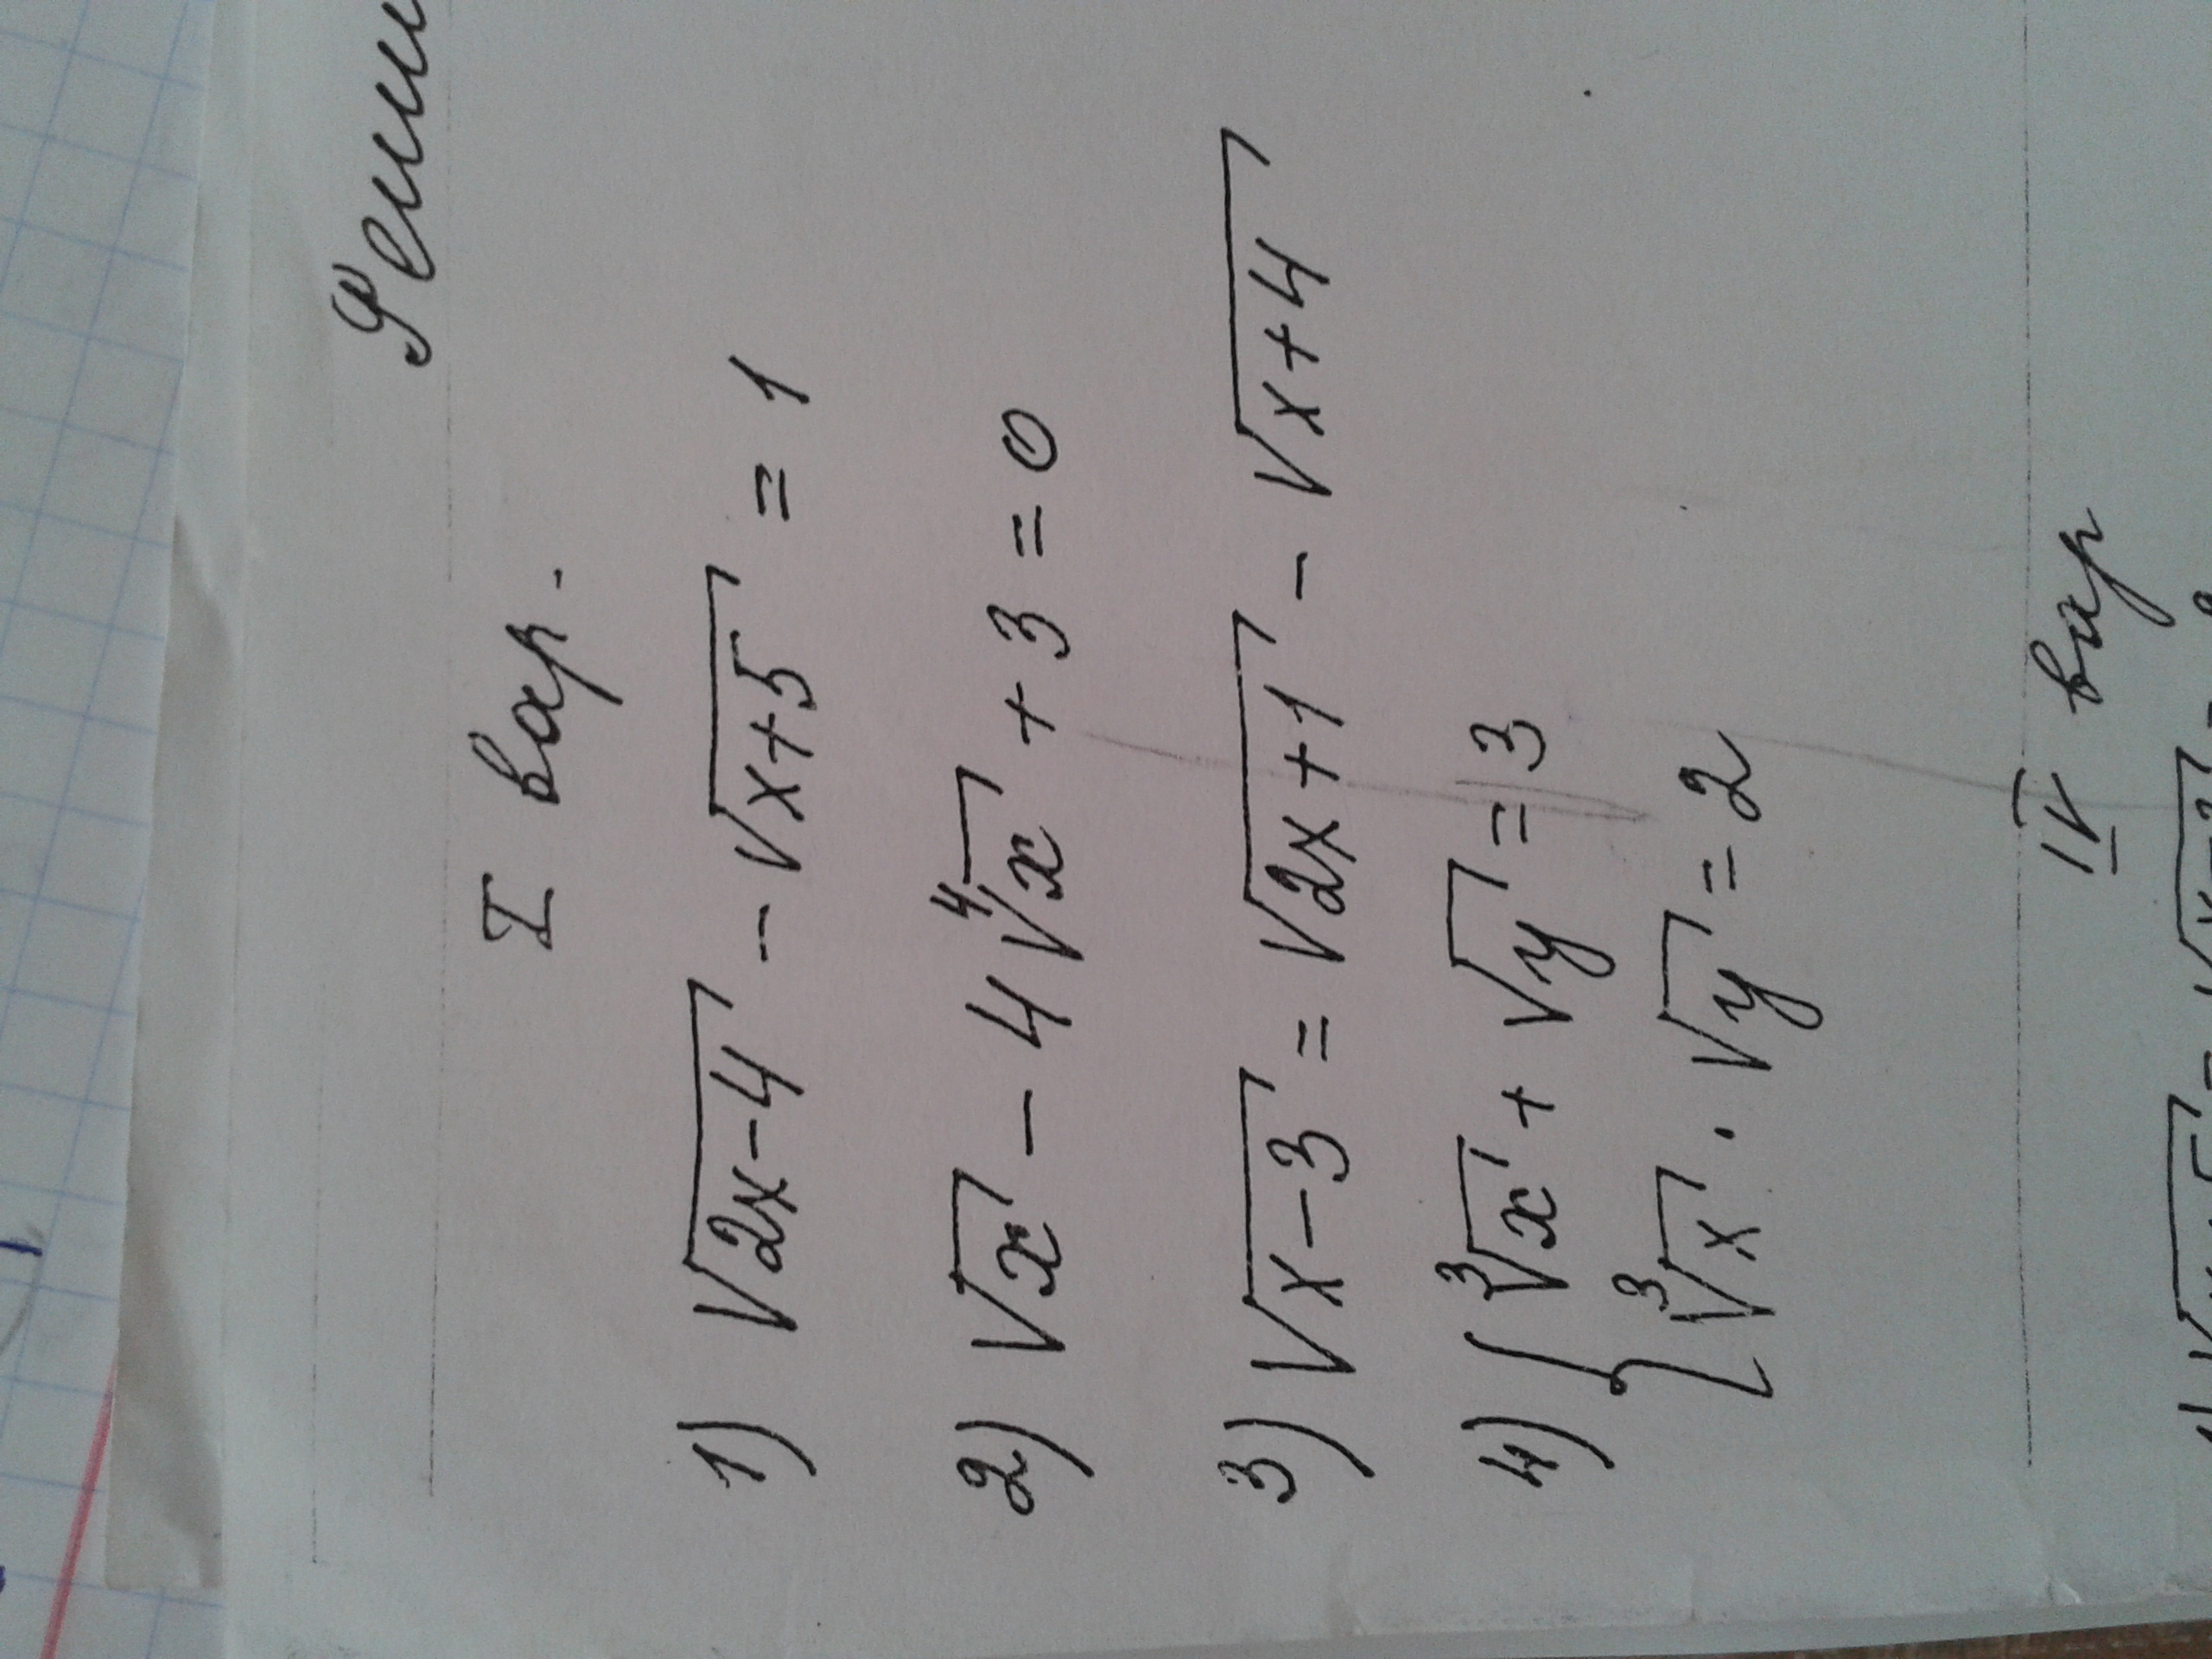 I вар.
1) √(2x-4) - √(x+5) = 1
2) √x - 4 ⁴√x + 3 = 0
3) √(x-3) = √(2x+1) - √(x+4)
4) { ³√x + √y = 3
³√x · √y = 2
II вар